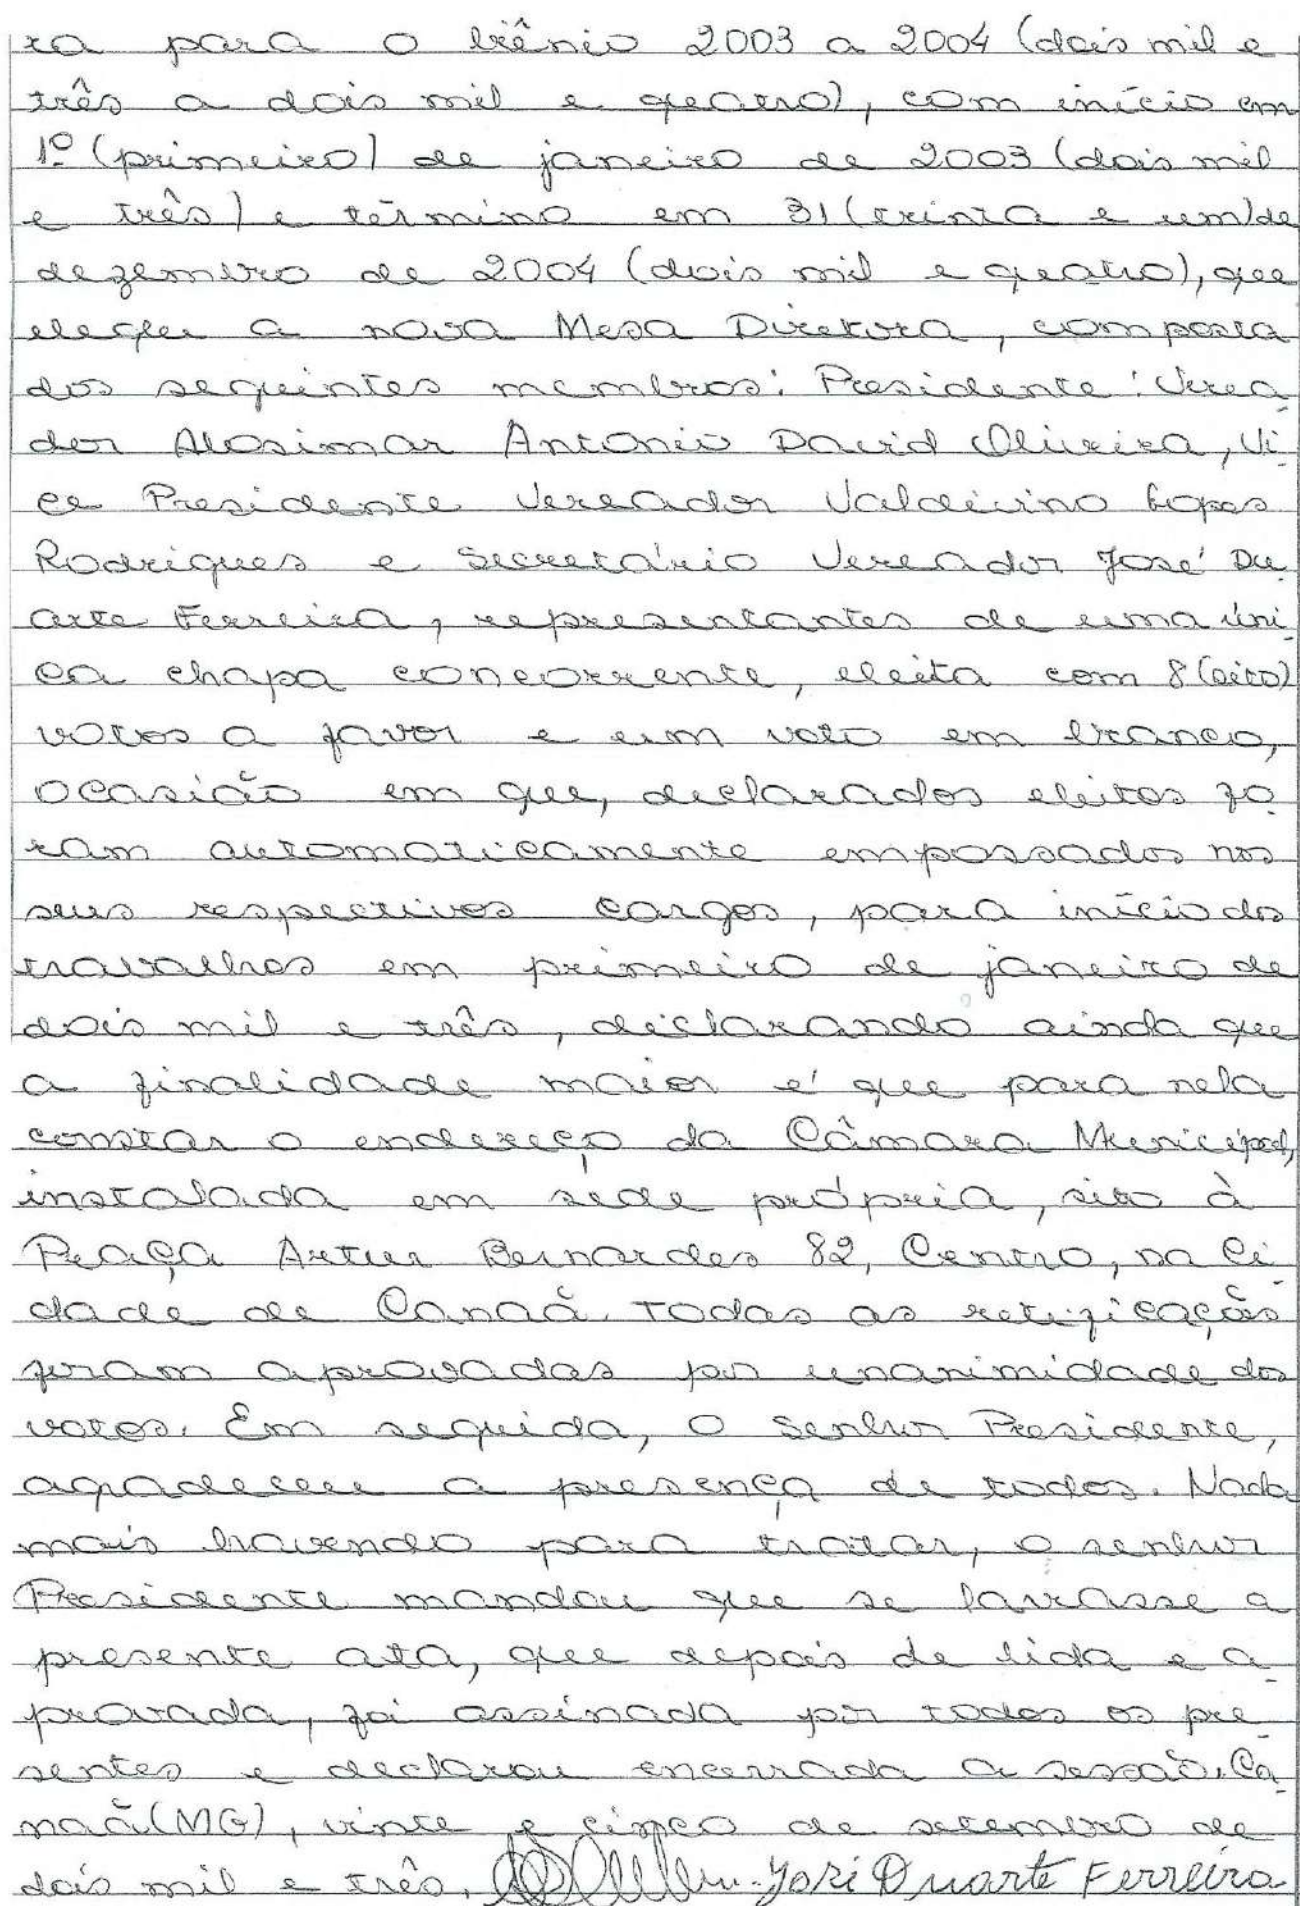 ra para o biênio 2003 a 2004 (dois mil e
três a dois mil e quatro), com início em
1º (primeiro) de janeiro de 2003 (dois mil
e três) e término em 31 (trinta e um) de
dezembro de 2004 (dois mil e quatro), que
elegeu a nova Mesa Diretora, composta
dos seguintes membros: Presidente: Verea
dor Alosimar Antonio David Oliveira, Vi-
ce Presidente Vereador Valdivino Lopes
Rodrigues e Secretário Vereador José Du
arte Ferreira, representantes de uma úni-
ca chapa concorrente, eleita com 8 (oito)
votos a favor e um voto em branco,
ocasião em que, declarados eleitos fo-
ram automaticamente empossados nos
seus respectivos cargos, para início dos
trabalhos em primeiro de janeiro de
dois mil e três, declarando ainda que
a finalidade maior é que para nela
constar o endereço da Câmara Municipal,
instalada em séde própria, sito à
Praça Artur Bernardes 82, Centro, na Ci-
dade de Canaã. Todas as retificações
foram aprovadas por unanimidade dos
votos. Em seguida, o Senhor Presidente,
agradeceu a presença de todos. Nada
mais havendo para tratar, o senhor
Presidente mandou que se lavrasse a
presente ata, que depois de lida e a-
provada, foi assinada por todos os pre-
sentes e declarou encerrada a sessão. Ca-
naã (MG), vinte e cinco de setembro de
dois mil e três. José Duarte Ferreira